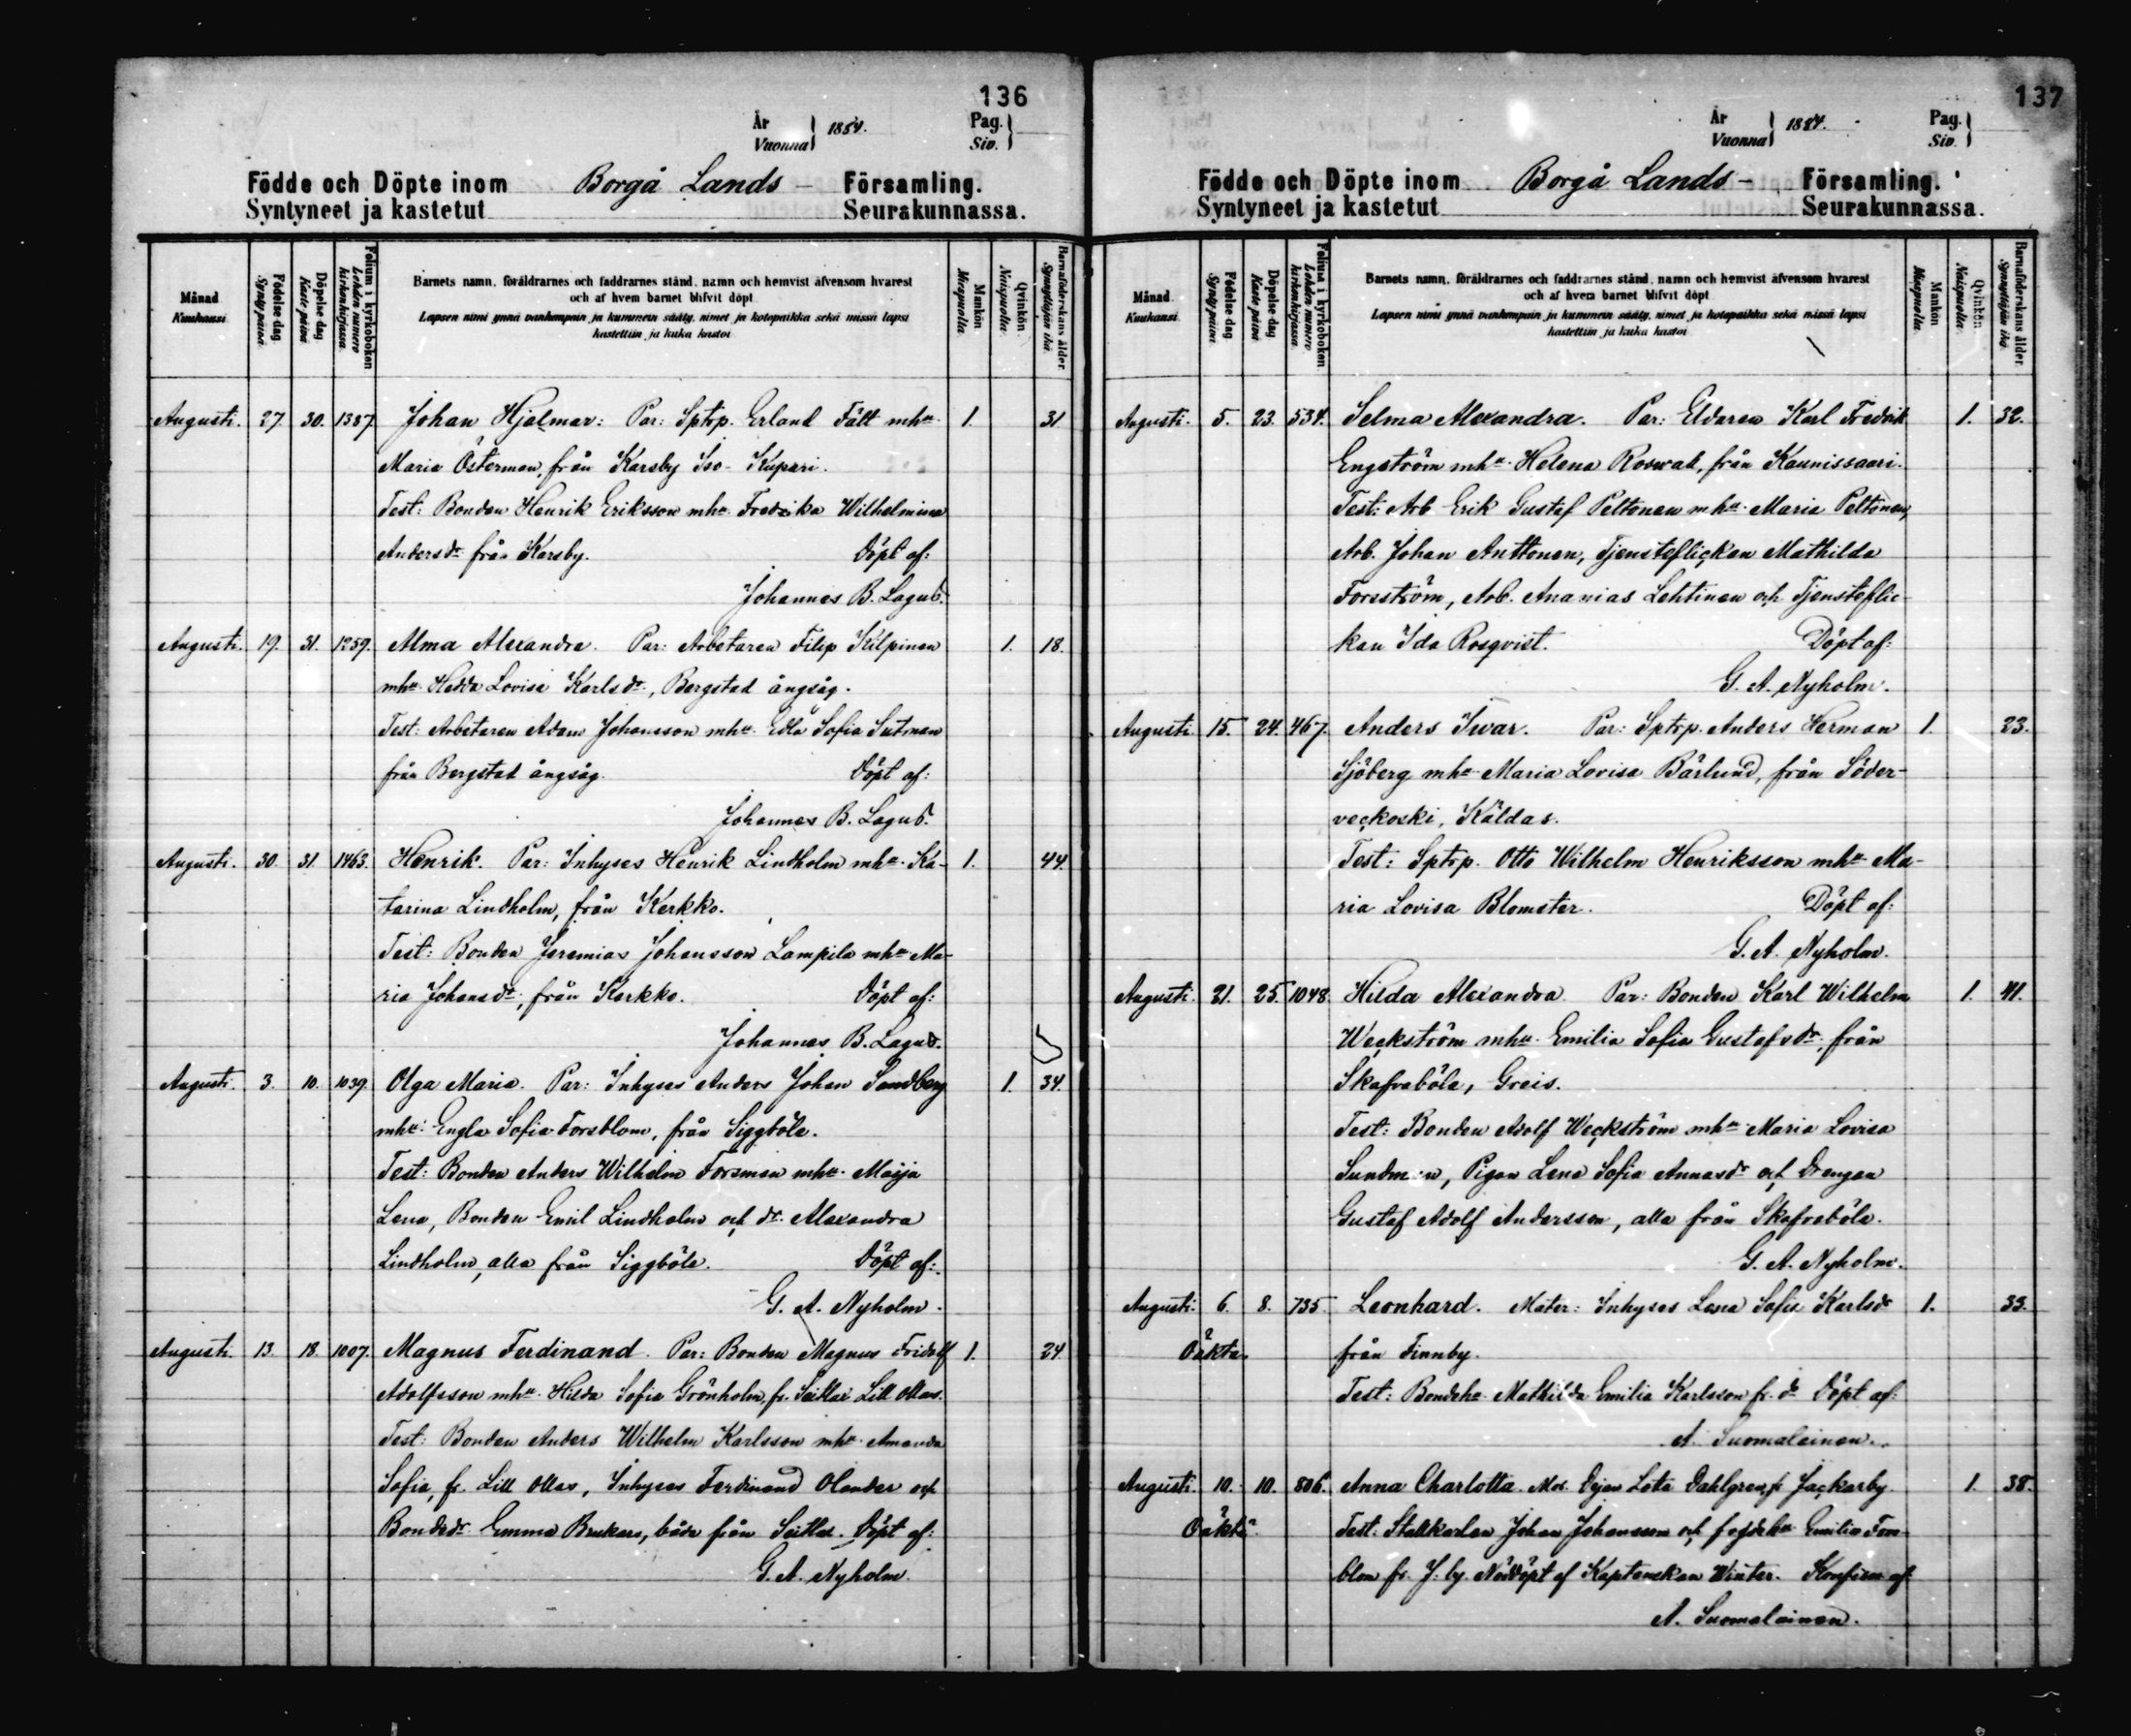 136
År
Vuonna } 1884.
Pag.
Siv. }
Födde och Döpte inom Borgå Lands- Församling.
Syntyneet ja kastetut Seurakunnassa.
Månad
Kuukausi
Födelse dag
Syntypäivä
Döpelse dag
Kaste päivä
Folium i kyrkoboken
Lehden numero kirkonkirjassa.
Barnets namn, föräldrarnes och faddrarnes stånd, namn och hemvist äfvensom hvarest
och af hvem barnet blifvit döpt
Lapsen nimi ynnä vanhempain ja kummein sääty, nimet ja kotopaikka sekä missä lapsi
kastettiin ja kuka kastoi
Mankön
Miespuolta.
Qvinkön
Naispuolta.
Barnaföderskans ålder.
Synnyttäjän ikä.
Augusti. 27. 30. 1387. Johan Hjalmar: Par: Sptrp. Erland Fält mhu 1. 31
Maria Österman, från Karsby Iso-Kupari.
Test: Bonden Henrik Eriksson mhu Fredrika Wilhelmina
Andersdr från Karsby. Döpt af:
Johannes B. Lagus.
Augusti. 19. 31. 1259. Alma Alexandra. Par: Arbetaren Filip Kilpinen 1. 18.
mhu Hedda Lovisa Karlsdr, Bergstad ångsåg.
Test: Arbetaren Adam Johansson mhu Edla Sofia Sutman
från Bergstad ångsåg. Döpt af:
Johannes B. Lagus.
Augusti. 30. 31. 1463. Henrik. Par: Inhyses Henrik Lindholm mhu Ka- 1. 44.
tarina Lindholm, från Kerkko.
Test: Bonden Jeremias Johansson Lampila mhu Ma-
ria Johansdr, från Kerkko. Döpt af:
Johannes B. Lagus.
Augusti. 3. 10. 1039. Olga Maria. Par: Inhyses Anders Johan Sandberg 1. 34.
mhu Engla Sofia Forsblom, från Siggböle.
Test: Bonden Anders Wilhelm Forsman mhu Maija
Lena, Bonden Emil Lindholm och dr Alexandra
Lindholm, alla från Siggböle. Döpt af:
G. A. Nyholm.
Augusti. 13. 18. 1007. Magnus Ferdinand. Par: Bonden Magnus Fridolf 1. 24.
Adolfsson mhu Hilda Sofia Grönholm, fr. Seitlax Lill Ollas.
Test: Bonden Anders Wilhelm Karlsson mhu Amanda
Sofia, fr. Lill Ollas, Inhyses Ferdinand Olander och
Bondedr Emma, båda från Seitlax. Döpt af:
G. A. Nyholm.
137
År
Vuonna } 1884.
Pag.
Siv. }
Födde och Döpte inom Borgå Lands- Församling.
Syntyneet ja kastetut Seurakunnassa.
Månad
Kuukausi
Födelse dag
Syntypäivä
Döpelse dag
Kaste päivä
Folium i kyrkoboken
Lehden numero kirkonkirjassa.
Barnets namn, föräldrarnes och faddrarnes stånd, namn och hemvist äfvensom hvarest
och af hvem barnet blifvit döpt
Lapsen nimi ynnä vanhempain ja kummein sääty, nimet ja kotopaikka sekä missä lapsi
kastettiin ja kuka kastoi
Mankön
Miespuolta.
Qvinkön
Naispuolta.
Barnaföderskans ålder.
Synnyttäjän ikä.
Augusti. 5. 23. 534. Selma Alexandra. Par: Eldaren Karl Fredrik 1. 32.
Engström mhu Helena, från Kaunissaari.
Test: Arb Erik Gustaf Peltonen mhu Maria Peltonen,
Arb. Johan Anttonen, Tjensteflickan Mathilda
Forsström, Arb. Ananias Lehtinen och Tjensteflic-
kan Ida Rosqvist. Döpt af:
G. A. Nyholm.
Augusti 15. 24. 467. Anders Ivar. Par: Sptrp. Anders Herman 1. 23.
Sjöberg mhu Maria Lovisa Bärlund, från Söder-
veckoski, Käldas.
Test: Sptrp. Otto Wilhelm Henriksson mhu Ma-
ria Lovisa Blomster. Döpt af:
G. A. Nyholm.
Augusti. 21. 25. 1048. Hilda Alexandra. Par: Bonden Karl Wilhelm 1. 41.
Weckström mhu Emilia Sofia Gustafsdr, från
Skafvaböle, Greis.
Test: Bonden Adolf Weckström mhu Maria Lovisa
Sundman, Pigan Lena Sofia Annasdr och Drengen
Gustaf Adolf Andersson, alla från Skafvaböle.
G. A. Nyholm.
Augusti. 6. 8. 735. Leonhard. Mater: Inhyses Lena Sofia Karlsdr 1. 33.
Oäkta. från Finnby.
Test: Bondehu Mathilda Emilia Karlsson fr. do Döpt af:
A. Suomalainen.
Augusti. 10. 10. 806. Anna Charlotta. Mod. Dejan Lota Dahlgren, fr Jackarby. 1. 38.
Oäkta. Test: Stallkarlen Johan Johansson och Emilia Fors-
blom fr. J:by. Nöddöpt af Kaptenskan Winter. Konfirm af
A. Suomalainen.